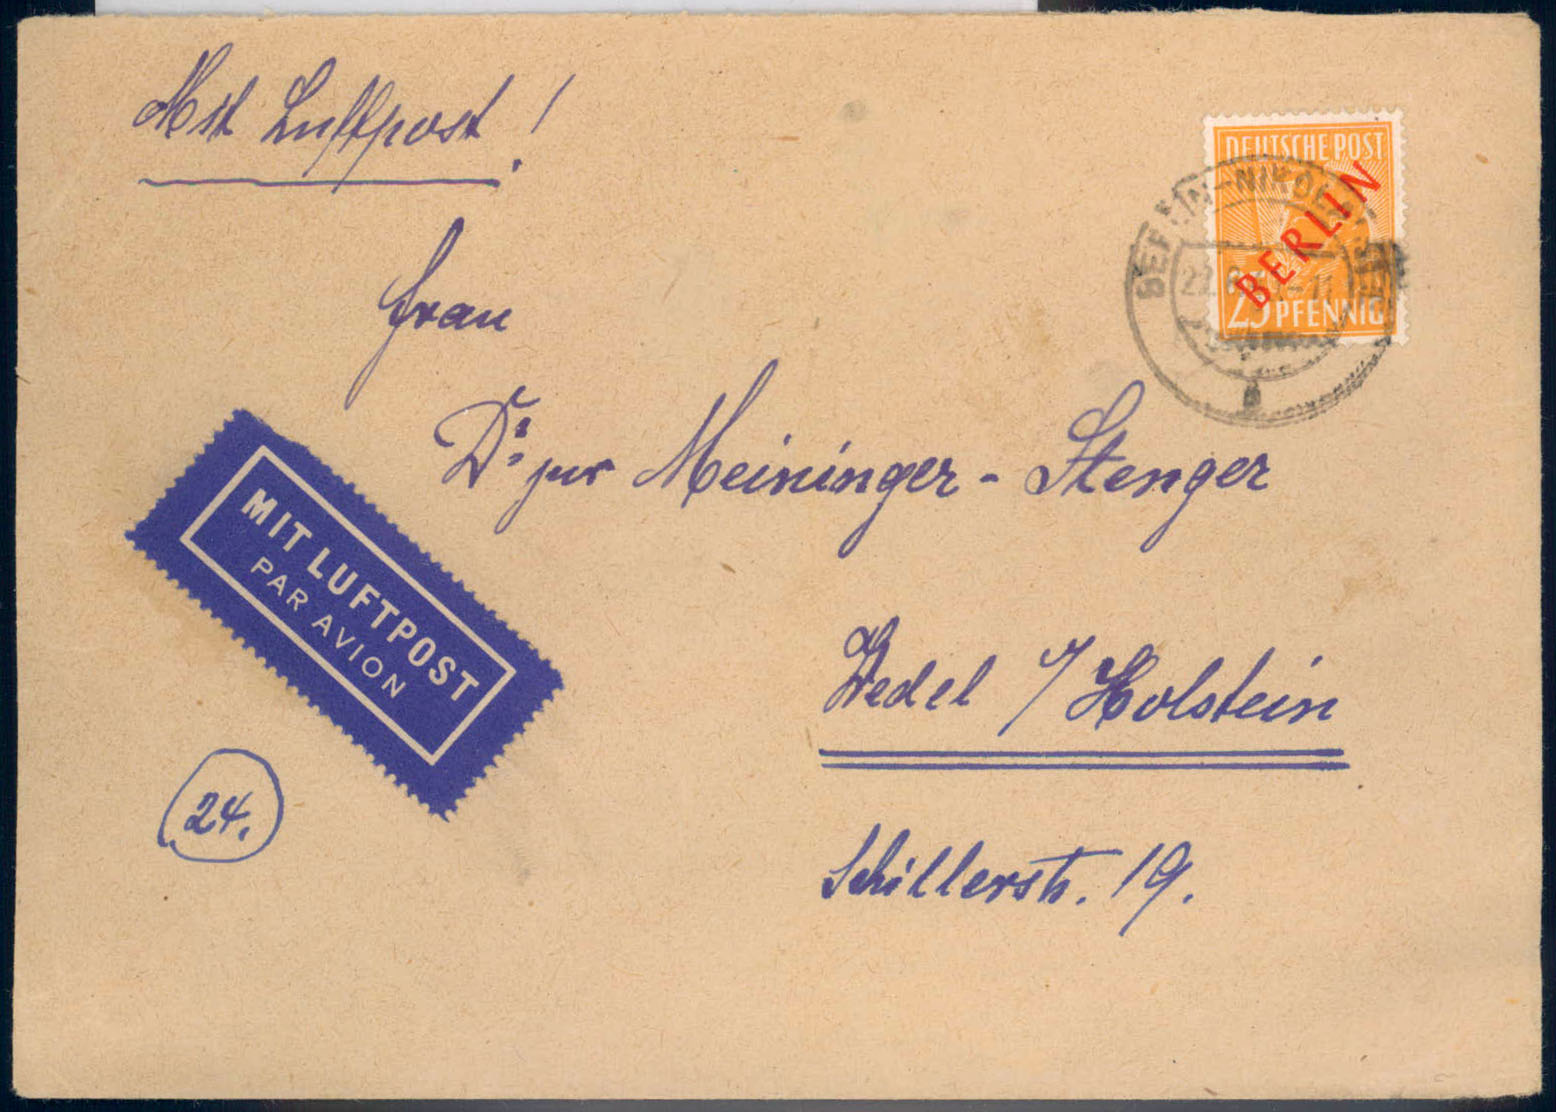 Mit Luftpost!
DEUTSCHE POST
BERLIN
25 PFENNIG
BERLIN-NIKOLASSEE
a
Frau
Dr. jur Meininger-Stenger
MIT LUFTPOST
PAR AVION
Wedel / Holstein
24.
Schillerstr. 19.